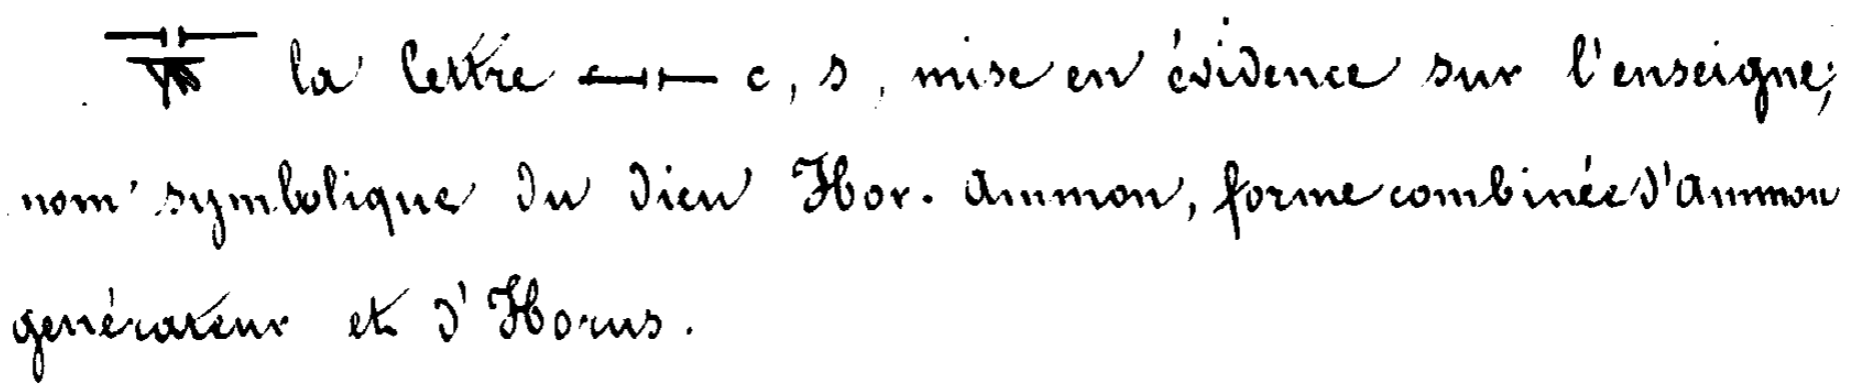 la lettre c, s, mise en évidence sur l'enseigne;
nom symbolique du dieu Hor. Ammon, forme combinée d'Ammon
générateur et d'Horus.